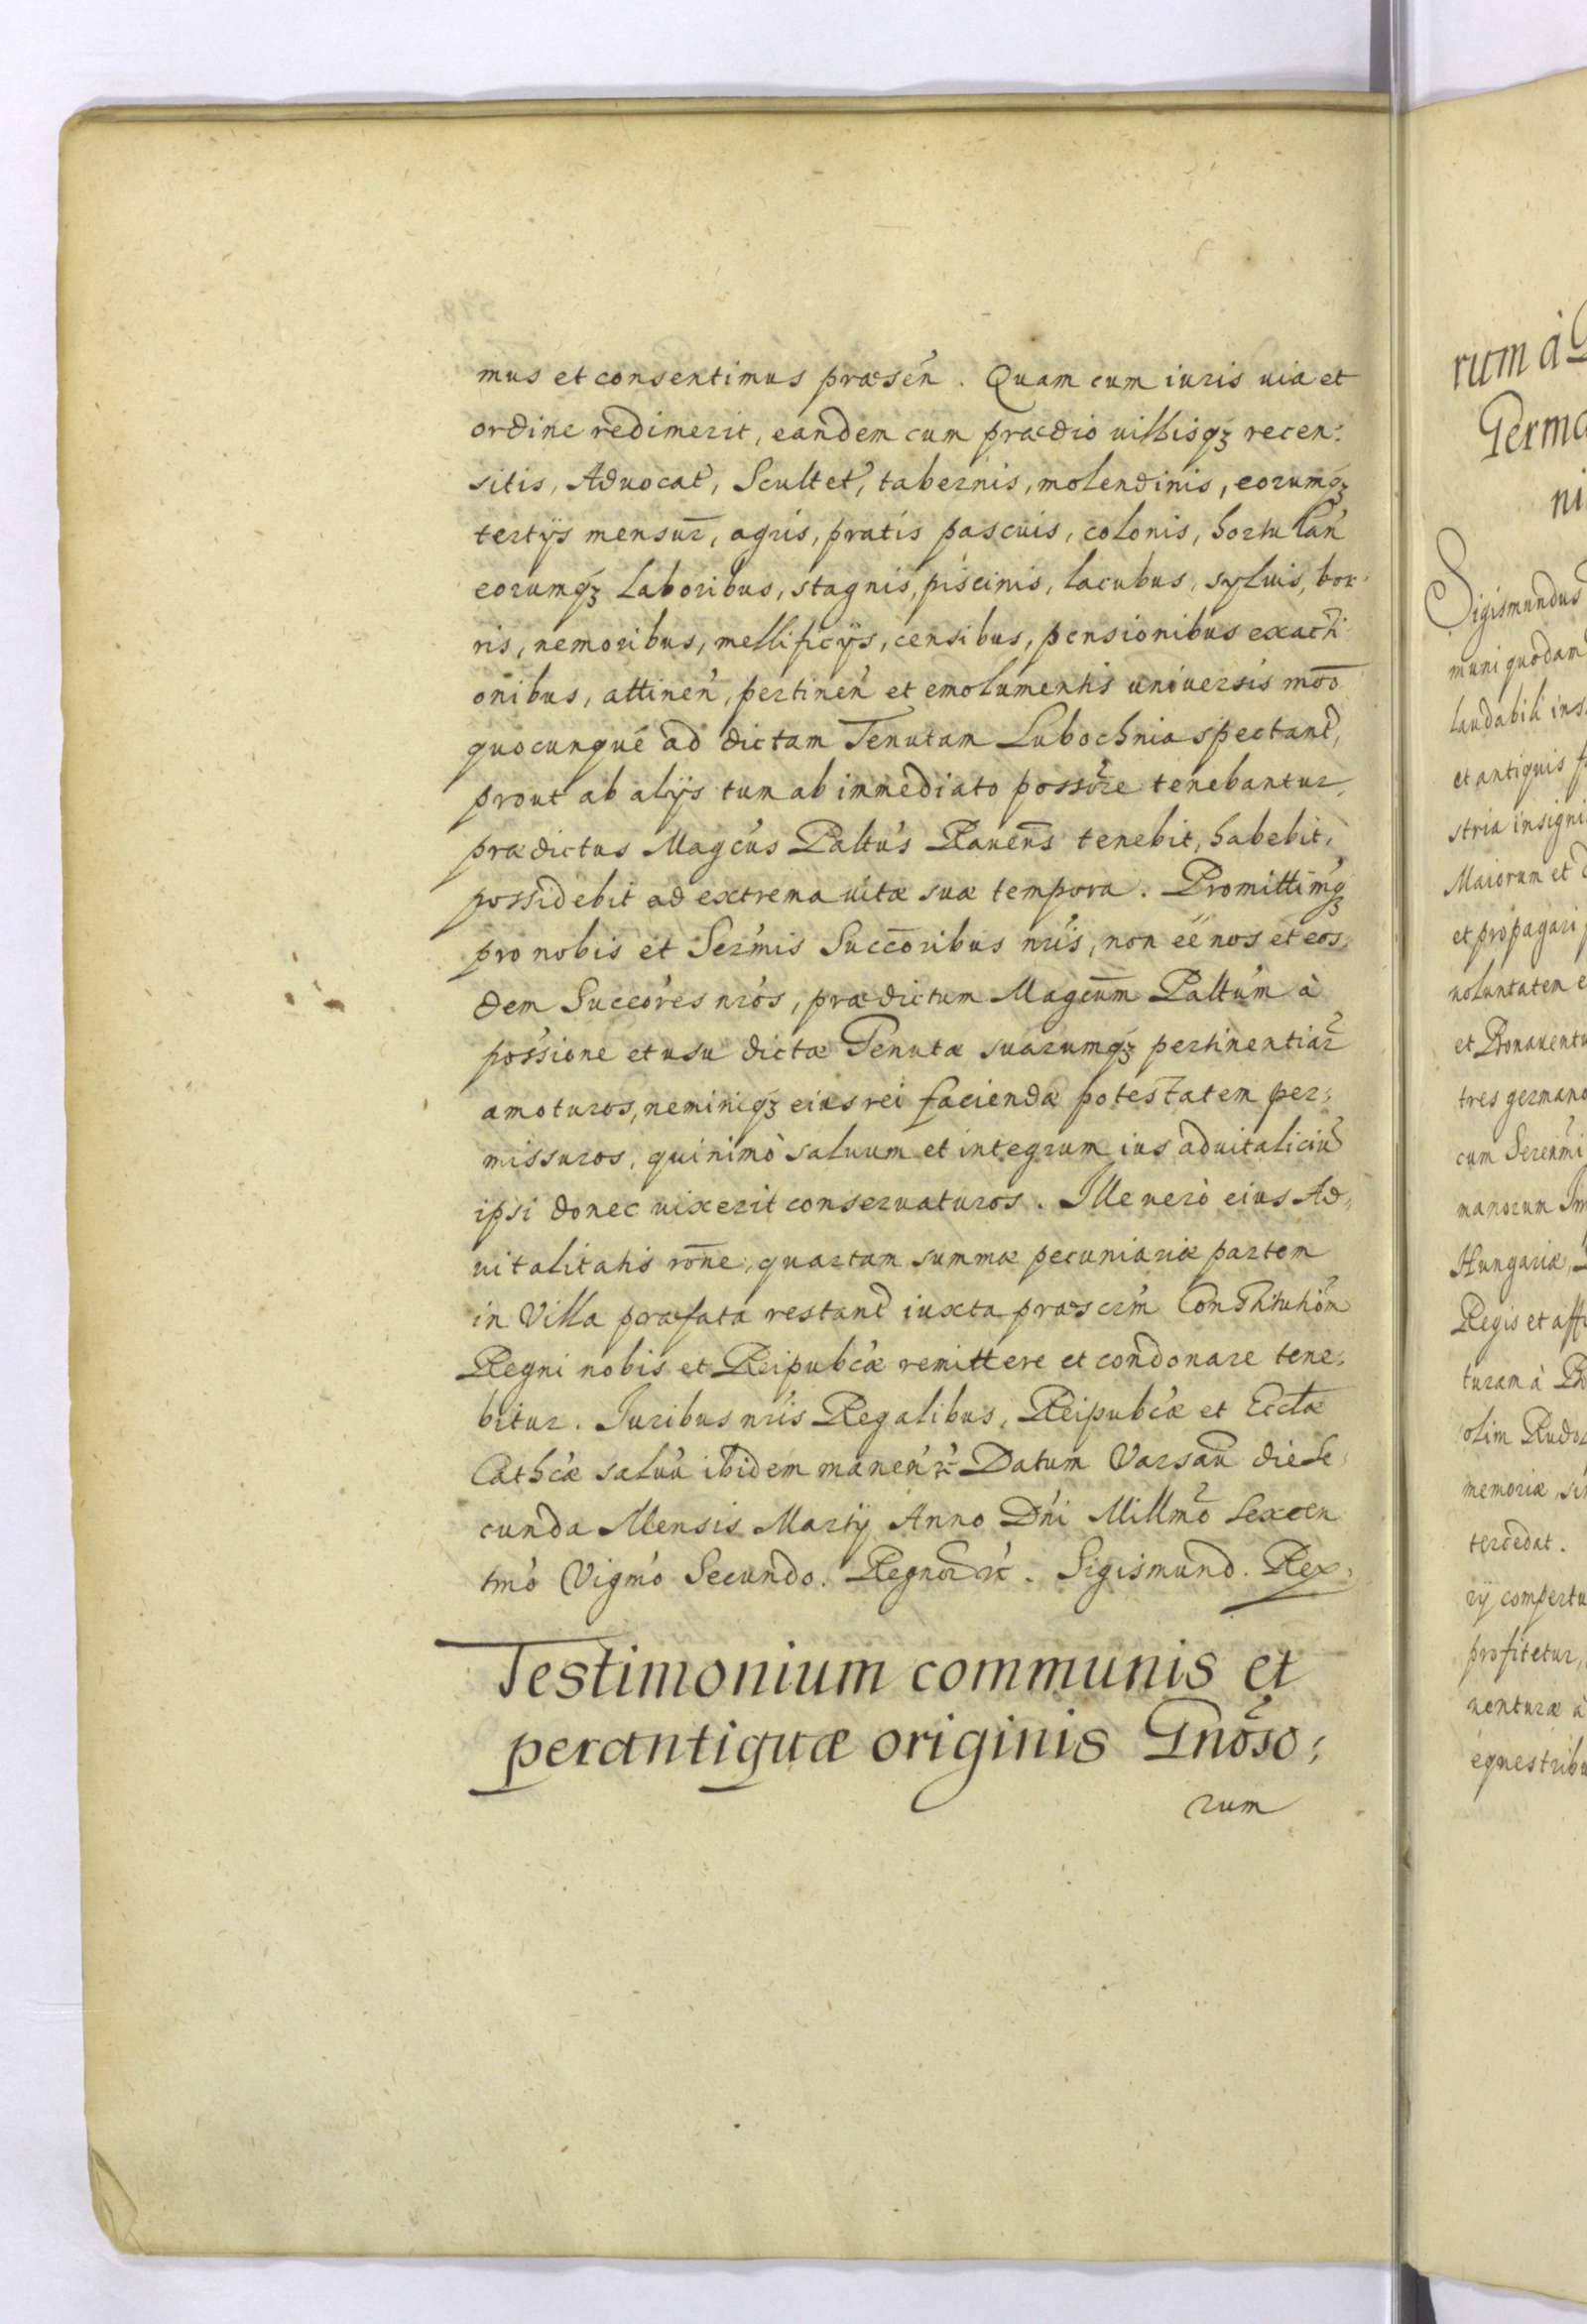 mus et consentimus præsén. Quam cum iuris uia et
ordine redimerit, eandem cum prædio uillisqꝫ recen:
sitis, Aduocat, Scultet, tabernis, molendinis, eorumqꝫ
tertÿs mensur̄, agris, pratis pascuis, colonis, hortulań
eorumqꝫ laboribus, stagnis, piscinis, lacubus, syluis, bor:
ris, nemoribus, mellificÿs, censibus, pensionibus exacti
onibus, attineń, pertineń et emolumentis uniuersis mōō
quocunqué ad dictam Tenutam Lubochnia spectand,
prout ab alÿs tum ab immediato possõre tenebantur,
prædictus Magcús Paltús Rauēns tenebit, habebit,
possidebit ad extrema uitæ suæ tempora. Promittimqꝫ
pro nobis et Sermís Succōribus nrís, non éé nos et eos,
dem Succóres nrós, prædictum Magcūm Paltúm à
possíone et usu dictæ Tenutæ suarumqꝫ pertinentiar̃
amoturos, neminiqꝫ eius rei faciendæ potestatem per:
missuros, quinimò saluum et integrum ius aduitaliciū
ipsi donec uixerit conseruaturos. Ille uerò eius Ad,
uitalitatis rōne, quartam summæ pecuniariæ partem
in Villa præfata restand iuxta præscrm̃ Constitutiõn
Regni nobis et Reipubcǽ remittere et condonare tene:
bitur. Iuribus nrís Regalibus, Reipubcǽ et Ecctæ
Cathcǽ saluú ibidem maneń ꝛć Datum Varsaū die Se,
cunda Mensis Martÿ Anno Dńi Millmõ Sexcen
tmó Vigmó Secundo. Regnor̃ ꝛć. Sigismund. Rex,
Testimonium communis et
perantiquæ originis Gnõso:
rum
rum à
Germa
ni
Sigismundus
muni quodam
laudabili ins
et antiquis
stria insigni
Maiorum et
et propagari
uoluntatem e
et Bonauentu
tres germano
cum Serenmĩ
manorum Im
Hungariæ,
Regis et aff
turam à
olim Rudol
memoriæ,
tercedat.
rÿ compertu
profitetur,
uenturæ à
equestribu